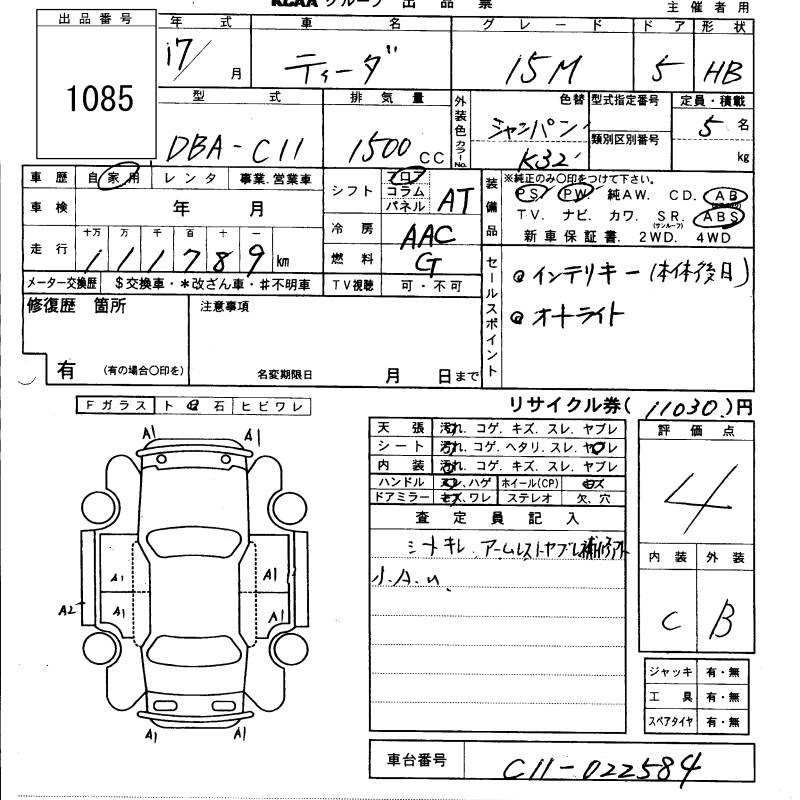 KCAA グループ 出品票
主催者用
出品番号
1085
年式 車名 グレード ドア 形状
17/ 月 ティーダ 15M 5 HB
型式 排気量 外装色 色替 カラーNo. 型式指定番号 類別区別番号 定員・積載
DBA-C11 1500 CC シャンパン K32 5名 kg
車歴 自家用 レンタ 事業.営業車
車検 年 月
走行 十万 万 千 百 十 一
111789 km
メーター交換歴 $交換車・*改ざん車・#不明車
シフト フロア コラム パネル AT
冷房 AAC
燃料 G
TV視聴 可・不可
装備品
※純正のみ〇印をつけて下さい。
PS PW 純AW. CD. AB
TV. ナビ. カワ. SR.(サンルーフ) ABS
新車保証書. 2WD. 4WD
セールスポイント
インテリキー(本体後日)
オートライト
修復歴 箇所
有 (有の場合〇印を)
注意事項
名変期限日 月 日まで
リサイクル券( 11030 )円
Fガラス ト 石 ヒビワレ
天張 汚れ. コゲ. キズ. スレ. ヤブレ
シート 汚れ. コゲ. ヘタリ. スレ. ヤブレ
内装 汚れ. コゲ. キズ. スレ. ヤブレ
ハンドル スレ.ハゲ ホイール(CP) キズ
ドアミラー キズ.ワレ ステレオ 欠、穴
査定員記入
シートキレ アームレストヤブレ補修アト
小A.u
評価点
4
内装 外装
C B
ジャッキ 有・無
工具 有・無
スペアタイヤ 有・無
A1 A1
A1 A1
A2 A1 A1
A1 A1
車台番号 C11-022584